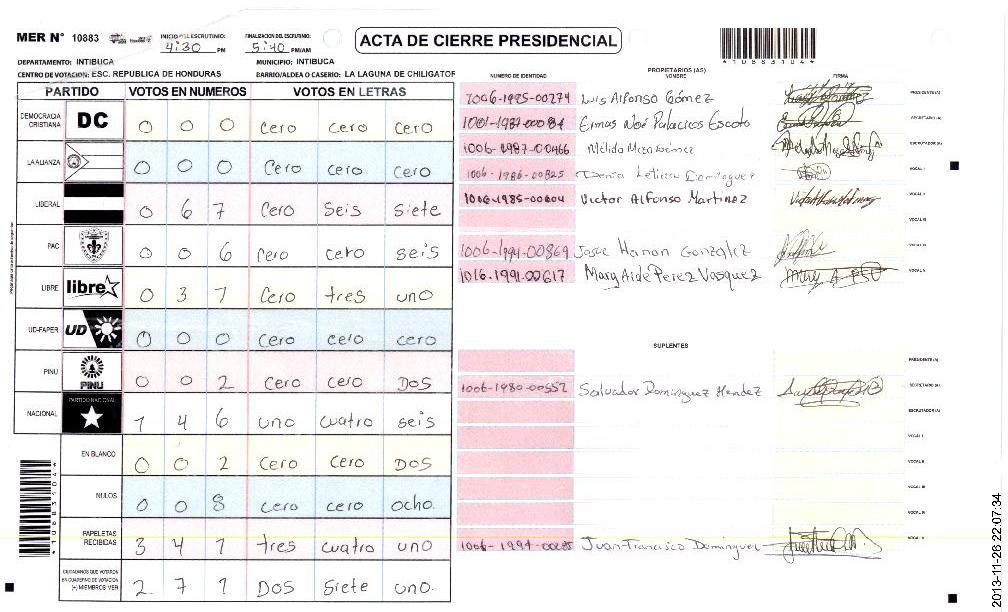 MER N° 10883 INICIO DEL ESCRUTINIO: 4:30 PM FINALIZACION DEL ESCRUTINIO: 5:40 PM/AM
ACTA DE CIERRE PRESIDENCIAL
*10883104*
DEPARTAMENTO: INTIBUCA MUNICIPIO: INTIBUCA
CENTRO DE VOTACION: ESC. REPUBLICA DE HONDURAS BARRIO/ALDEA O CASERIO: LA LAGUNA DE CHILIGATOR
PARTIDO VOTOS EN NUMEROS VOTOS EN LETRAS
DEMOCRACIA CRISTIANA DC 0 0 0 Cero cero Cero
LA ALIANZA 0 0 0 Cero cero cero
LIBERAL 0 6 7 Cero Seis Siete
PAC 0 0 6 Cero cero seis
LIBRE libre 0 3 1 Cero tres uno
UD-FAPER UD 0 0 0 cero cero cero
PINU PINU 0 0 2 Cero cero Dos
NACIONAL PARTIDO NACIONAL 1 4 6 uno cuatro seis
EN BLANCO 0 0 2 Cero Cero Dos
NULOS 0 0 8 cero cero ocho.
PAPELETAS RECIBIDAS 3 4 1 tres cuatro uno
CIUDADANOS QUE VOTARON EN CUADERNO DE VOTACION (+) MIEMBROS MER 2 7 1 Dos Siete uno.
*10883104*
PROPIETARIOS (AS)
NUMERO DE IDENTIDAD NOMBRE FIRMA
1006-1995-00274 Luis Alfonso Gómez PRESIDENTE (A)
Ermas Noé Palacios Escoto SECRETARIO (A)
1006-1987-00466 Mélida Meza Gómez ESCRUTADOR (A)
1006-1986-00825 Denia Leticia Dominguez VOCAL I
1006-1985-00604 Victor Alfonso Martinez VOCAL II
VOCAL III
1006-1994-00869 Josue Hanan Gonzalez VOCAL IV
1016-1991-00617 Mary Aide Perez Vasquez VOCAL V
SUPLENTES
PRESIDENTE (A)
1006-1980-00557 Salvador Dominguez Mendez SECRETARIO (A)
ESCRUTADOR (A)
VOCAL I
VOCAL II
VOCAL III
VOCAL IV
Juan Francisco Dominguez VOCAL V
2013-11-26 22:07:34